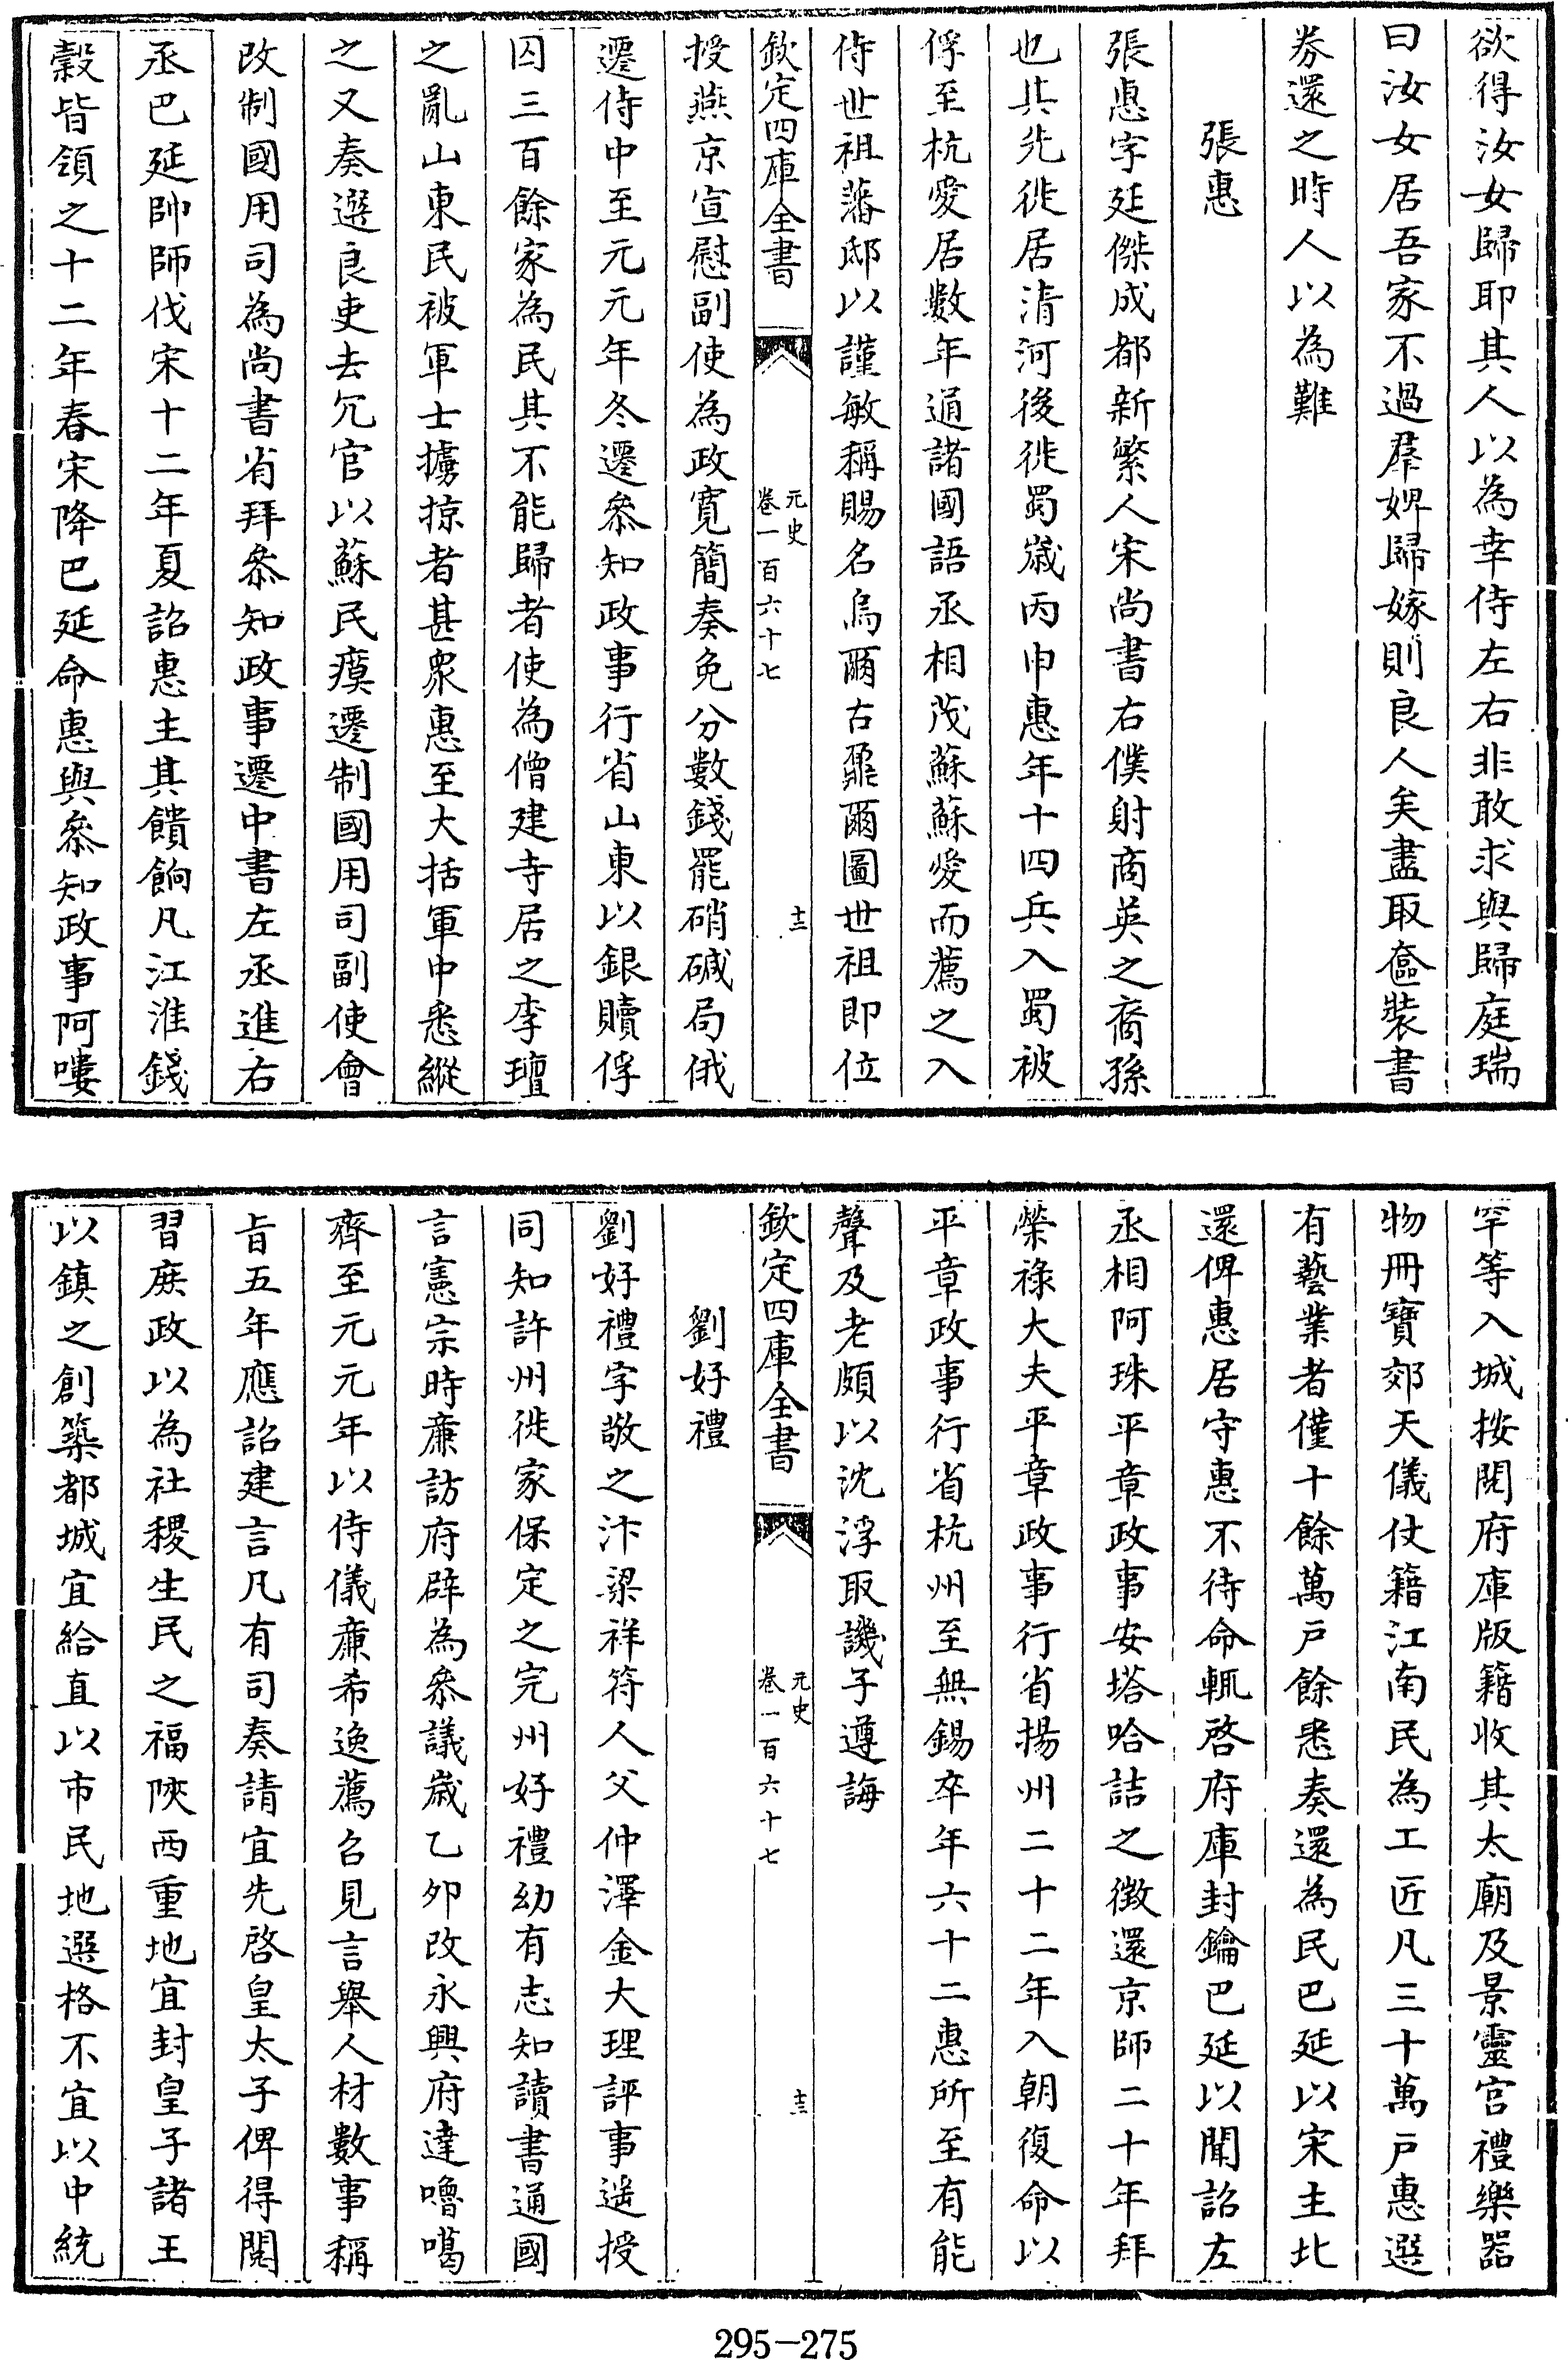 欲得汝女歸耶其人以為幸侍左右非敢求與歸庭瑞
曰汝女居吾家不過羣婢歸嫁則良人矣盡取奩裝書
券還之時人以為難
張惠
張惠字延傑成都新繁人宋尚書右僕射商英之裔孫
也其先徙居清河後徙蜀歲丙申惠年十四兵入蜀被
俘至杭愛居數年通諸國語丞相茂蘇蘇愛而薦之入
侍世祖藩邸以謹敏稱賜名烏爾古鼐爾圖世祖即位
欽定四庫全書
元史
卷一百六十七
十三
授燕京宣慰副使為政寛簡奏免分數錢罷硝碱局俄
遷侍中至元元年冬遷參知政事行省山東以銀贖俘
囚三百餘家為民其不能歸者使為僧建寺居之李璮
之亂山東民被軍士擄掠者甚衆惠至大括軍中悉縱
之又奏選良吏去冗官以蘇民瘼遷制國用司副使會
改制國用司為尚書省拜參知政事遷中書左丞進右
丞巴延帥師伐宋十二年夏詔惠主其饋餉凡江淮錢
穀皆領之十二年春宋降巴延命惠與參知政事阿嘍
罕等入城按閱府庫版籍收其太廟及景靈宮禮樂器
物冊寶郊天儀仗籍江南民為工匠凡三十萬戶惠選
有藝業者僅十餘萬戶餘悉奏還為民巴延以宋主北
還俾惠居守惠不待命輒啓府庫封鑰巴延以聞詔左
丞相阿珠平章政事安塔哈詰之徴還京師二十年拜
榮祿大夫平章政事行省揚州二十二年入朝復命以
平章政事行省杭州至無錫卒年六十二惠所至有能
聲及老頗以沈浮取譏子遵誨
欽定四庫全書
元史
卷一百六十七
十三
劉好禮
劉好禮字敬之汴梁祥符人父仲澤金大理評事遥授
同知許州徙家保定之完州好禮幼有志知讀書通國
言憲宗時廉訪府辟為參議歲乙夘改永興府達嚕噶
齊至元元年以侍儀廉希逸薦召見言舉人材數事稱
旨五年應詔建言凡有司奏請宜先啓皇太子俾得閱
習庶政以為社稷生民之福陝西重地宜封皇子諸王
以鎮之創築都城宜給直以市民地選格不宜以中統
295-275